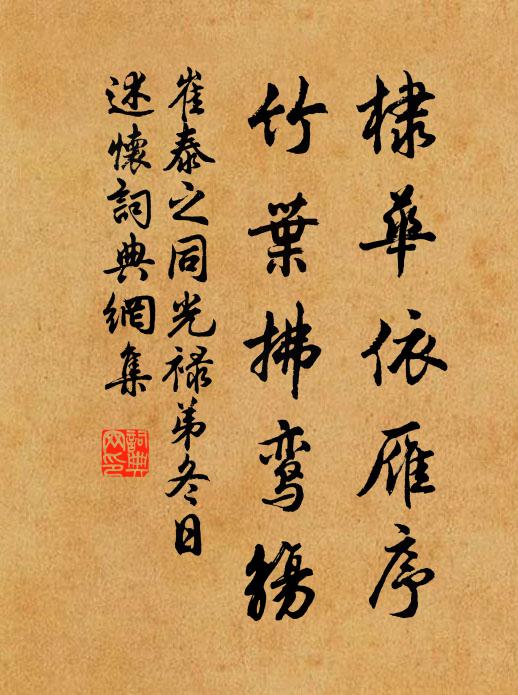 棣華依雁序
竹葉拂鸾觴
崔泰之同光禄弟冬日
述懷詞典網集
詞典
网印